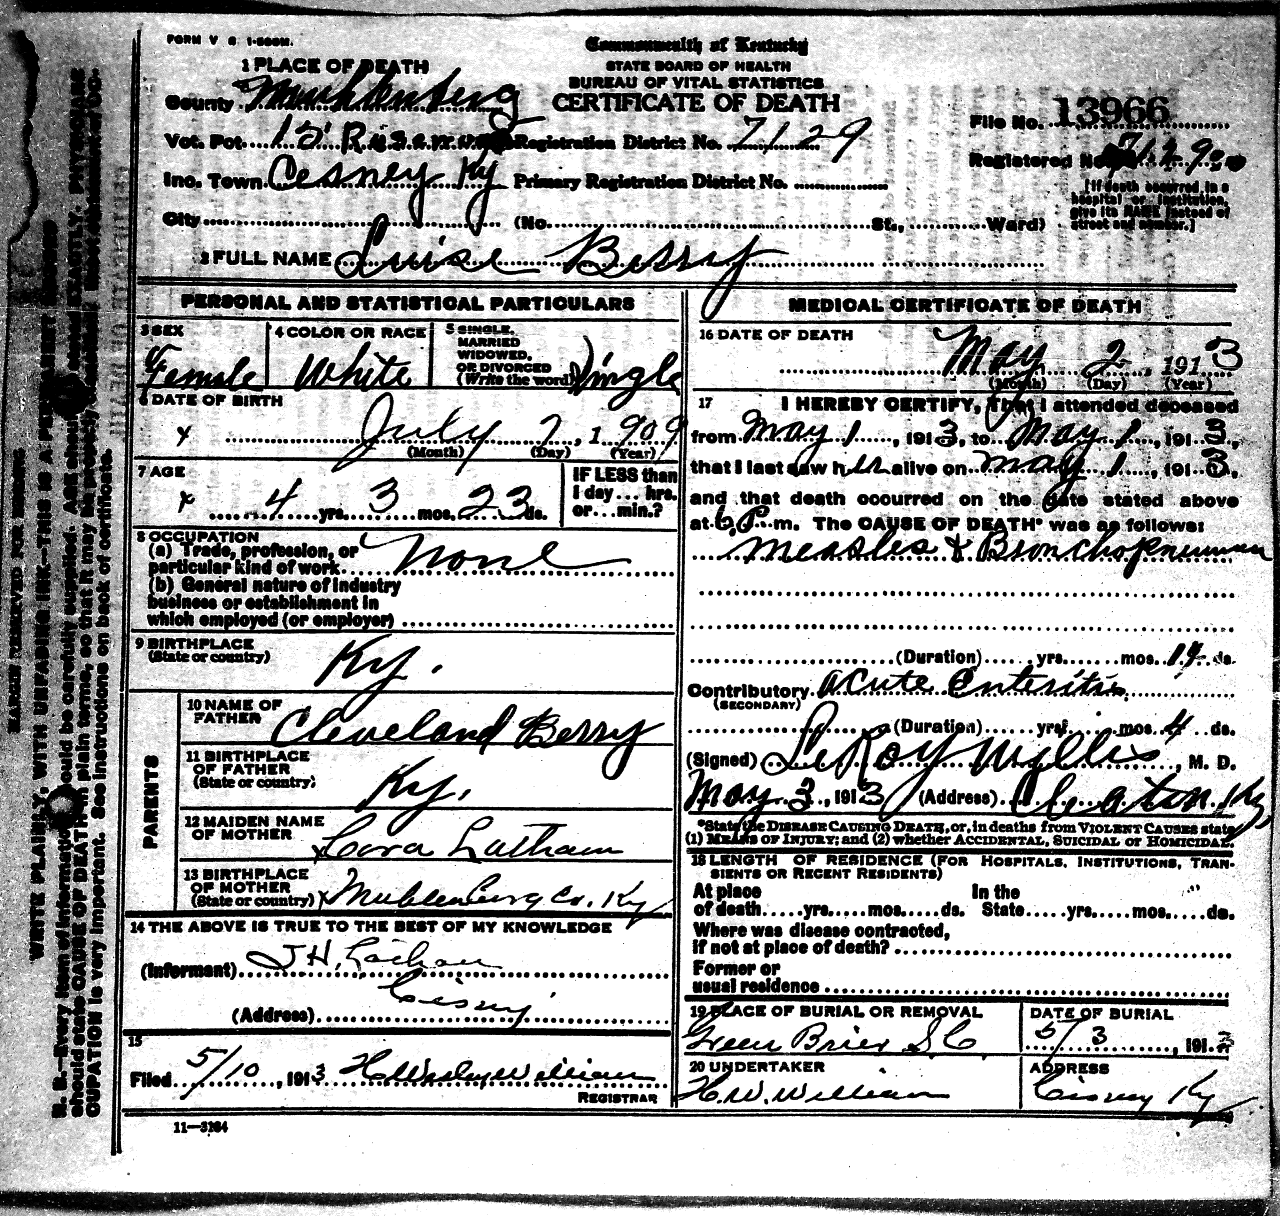 FORM V S 1-500M.
Commonwealth of Kentucky
STATE BOARD OF HEALTH
BUREAU OF VITAL STATISTICS
CERTIFICATE OF DEATH
1 PLACE OF DEATH
County Muhlenberg
Vot. Pct. 15 Registration District No. 7129
File No. 13966
Registered No. 7129
Inc. Town Cesney Ky Primary Registration District No.
[If death occurred in a hospital or institution, give its NAME instead of street and number.]
City (No. St., Ward)
2 FULL NAME Luise Berry
PERSONAL AND STATISTICAL PARTICULARS
3 SEX Female
4 COLOR OR RACE White
5 SINGLE, MARRIED WIDOWED, OR DIVORCED (Write the word) Single
6 DATE OF BIRTH
July 7, 1909
(Month) (Day) (Year)
7 AGE
4 yrs. 3 mos. 23 ds.
IF LESS than 1 day... hrs. or...min.?
8 OCCUPATION
(a) Trade, profession, or particular kind of work None
(b) General nature of industry business or establishment in which employed (or employer)
9 BIRTHPLACE (State or country) Ky.
PARENTS
10 NAME OF FATHER Cleveland Berry
11 BIRTHPLACE OF FATHER (State or country) Ky.
12 MAIDEN NAME OF MOTHER Lora Latham
13 BIRTHPLACE OF MOTHER (State or country) Muhlenburg Co. Ky
14 THE ABOVE IS TRUE TO THE BEST OF MY KNOWLEDGE
(Informant) J H Latham
(Address) Cisny
15
Filed 5/10, 1913 H Wesley William
REGISTRAR
11—3184
MEDICAL CERTIFICATE OF DEATH
16 DATE OF DEATH
May 2, 1913
(Month) (Day) (Year)
17 I HEREBY CERTIFY, That I attended deceased
from May 1, 1913, to May 1, 1913,
that I last saw her alive on May 1, 1913,
and that death occurred on the date stated above
at 6 P. m. The CAUSE OF DEATH* was as follows:
Measles & Bronchopneumonia
(Duration) yrs. mos. 14 ds.
Contributory Acute Enteritis
(SECONDARY)
(Duration) yrs. mos. 4 ds.
(Signed) LeRoy Wyllis, M. D.
May 3, 1913 (Address) Cleaton Ky,
*State the DISEASE CAUSING DEATH, or, in deaths from VIOLENT CAUSES state
(1) MEANS OF INJURY; and (2) whether ACCIDENTAL, SUICIDAL or HOMICIDAL.
18 LENGTH OF RESIDENCE (FOR HOSPITALS, INSTITUTIONS, TRANSIENTS OR RECENT RESIDENTS)
At place of death yrs. mos. ds. In the State yrs. mos. ds.
Where was disease contracted, if not at place of death?
Former or usual residence
19 PLACE OF BURIAL OR REMOVAL Green Brier S.C.
DATE OF BURIAL 5/3, 1913
20 UNDERTAKER H.W. William
ADDRESS Cisny Ky
MARGIN RESERVED FOR BINDING
WRITE PLAINLY, WITH UNFADING INK—THIS IS A PERMANENT RECORD
N. B.—Every item of information should be carefully supplied. AGE should be stated EXACTLY. PHYSICIANS
should state CAUSE OF DEATH in plain terms, so that it may be properly classified. Exact statement of OC-
CUPATION is very important. See instructions on back of certificate.